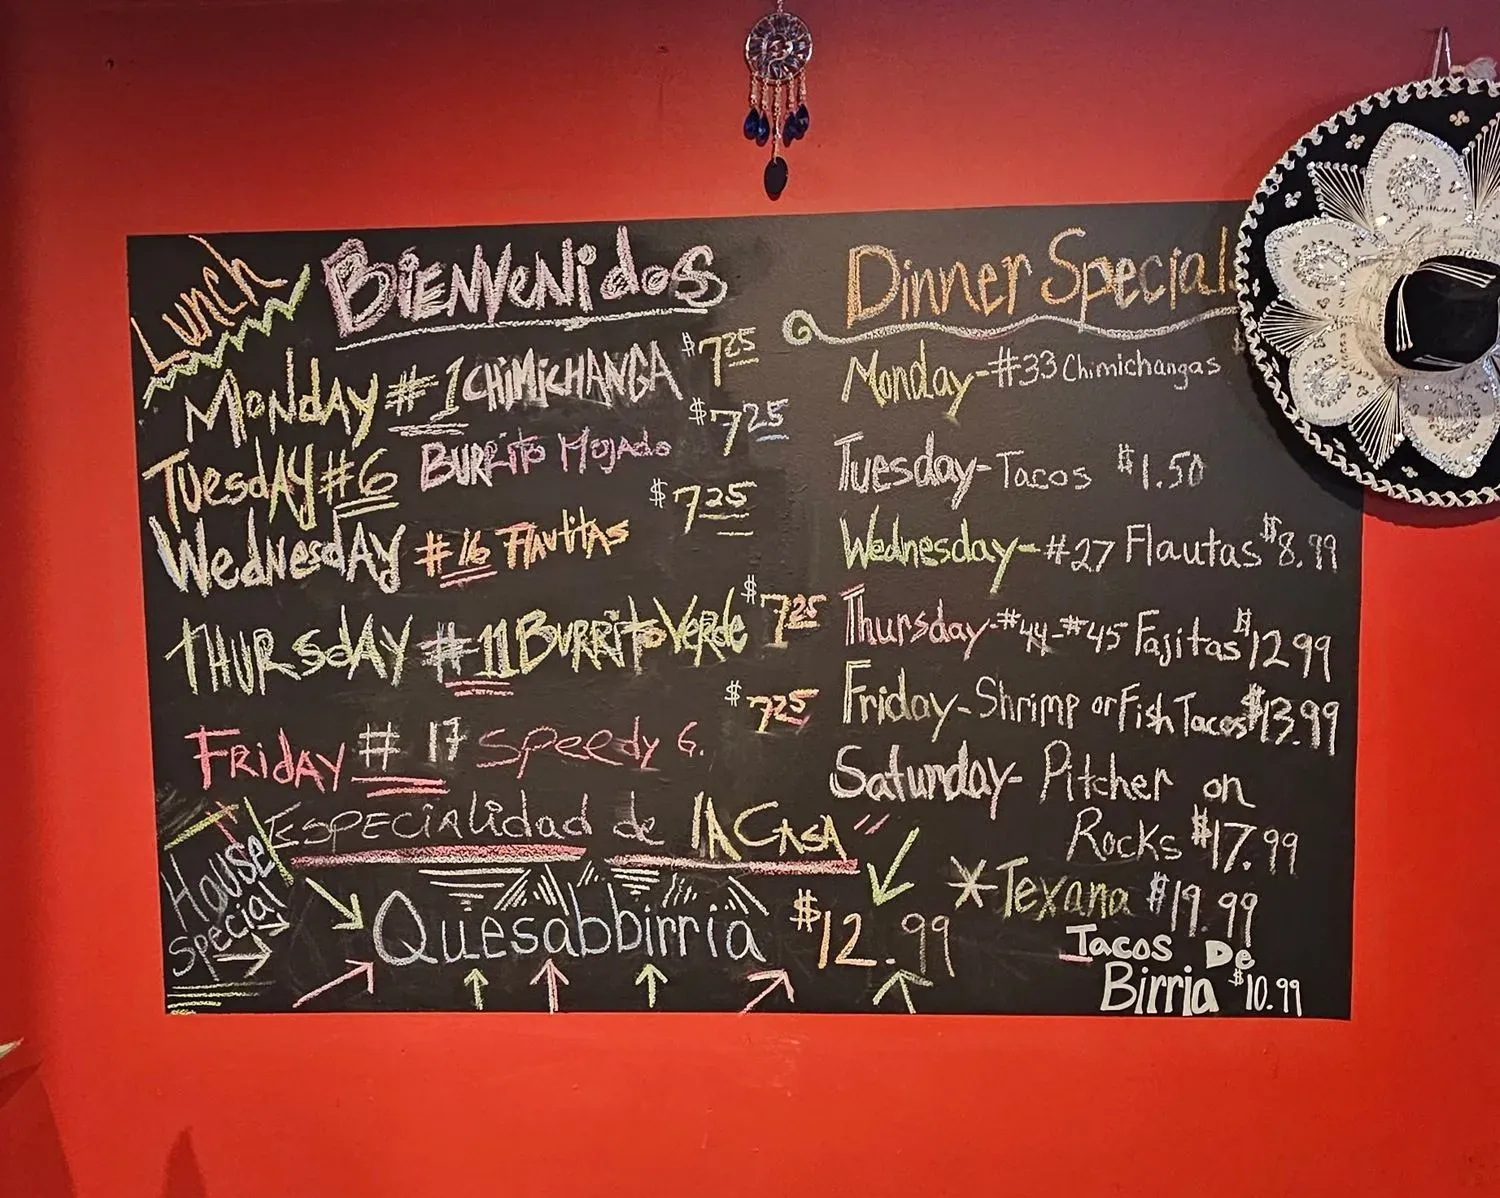 Lunch
BIENVENidoS
MONdAY #1 CHiMiCHANGA $7.25
TUesdAY #6 BURRito Mojado $7.25
WedNesdAY #16 FlAutitAs $7.25
THURSdAY #11 BURRito Verde $7.25
FRidAY #17 Speedy G. $7.25
ESPECiAlidad de lA CASA
House
Special
Quesabbirria $12.99
Dinner Special
Monday-#33 Chimichangas $
Tuesday-Tacos $1.50
Wednesday-#27 Flautas $8.99
Thursday-#44-#45 Fajitas $12.99
Friday-Shrimp or Fish Tacos $13.99
Saturday-Pitcher on
Rocks $17.99
*Texana $19.99
Tacos De
Birria $10.99